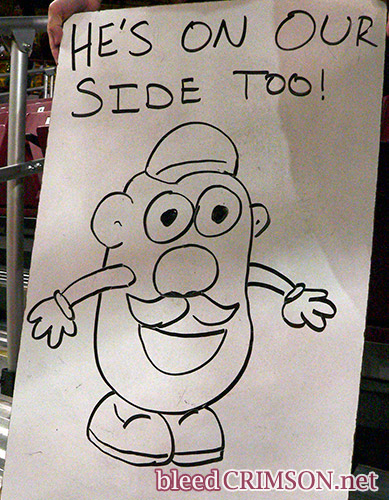 HE'S ON OUR
SIDE TOO!
bleedCRIMSON.net